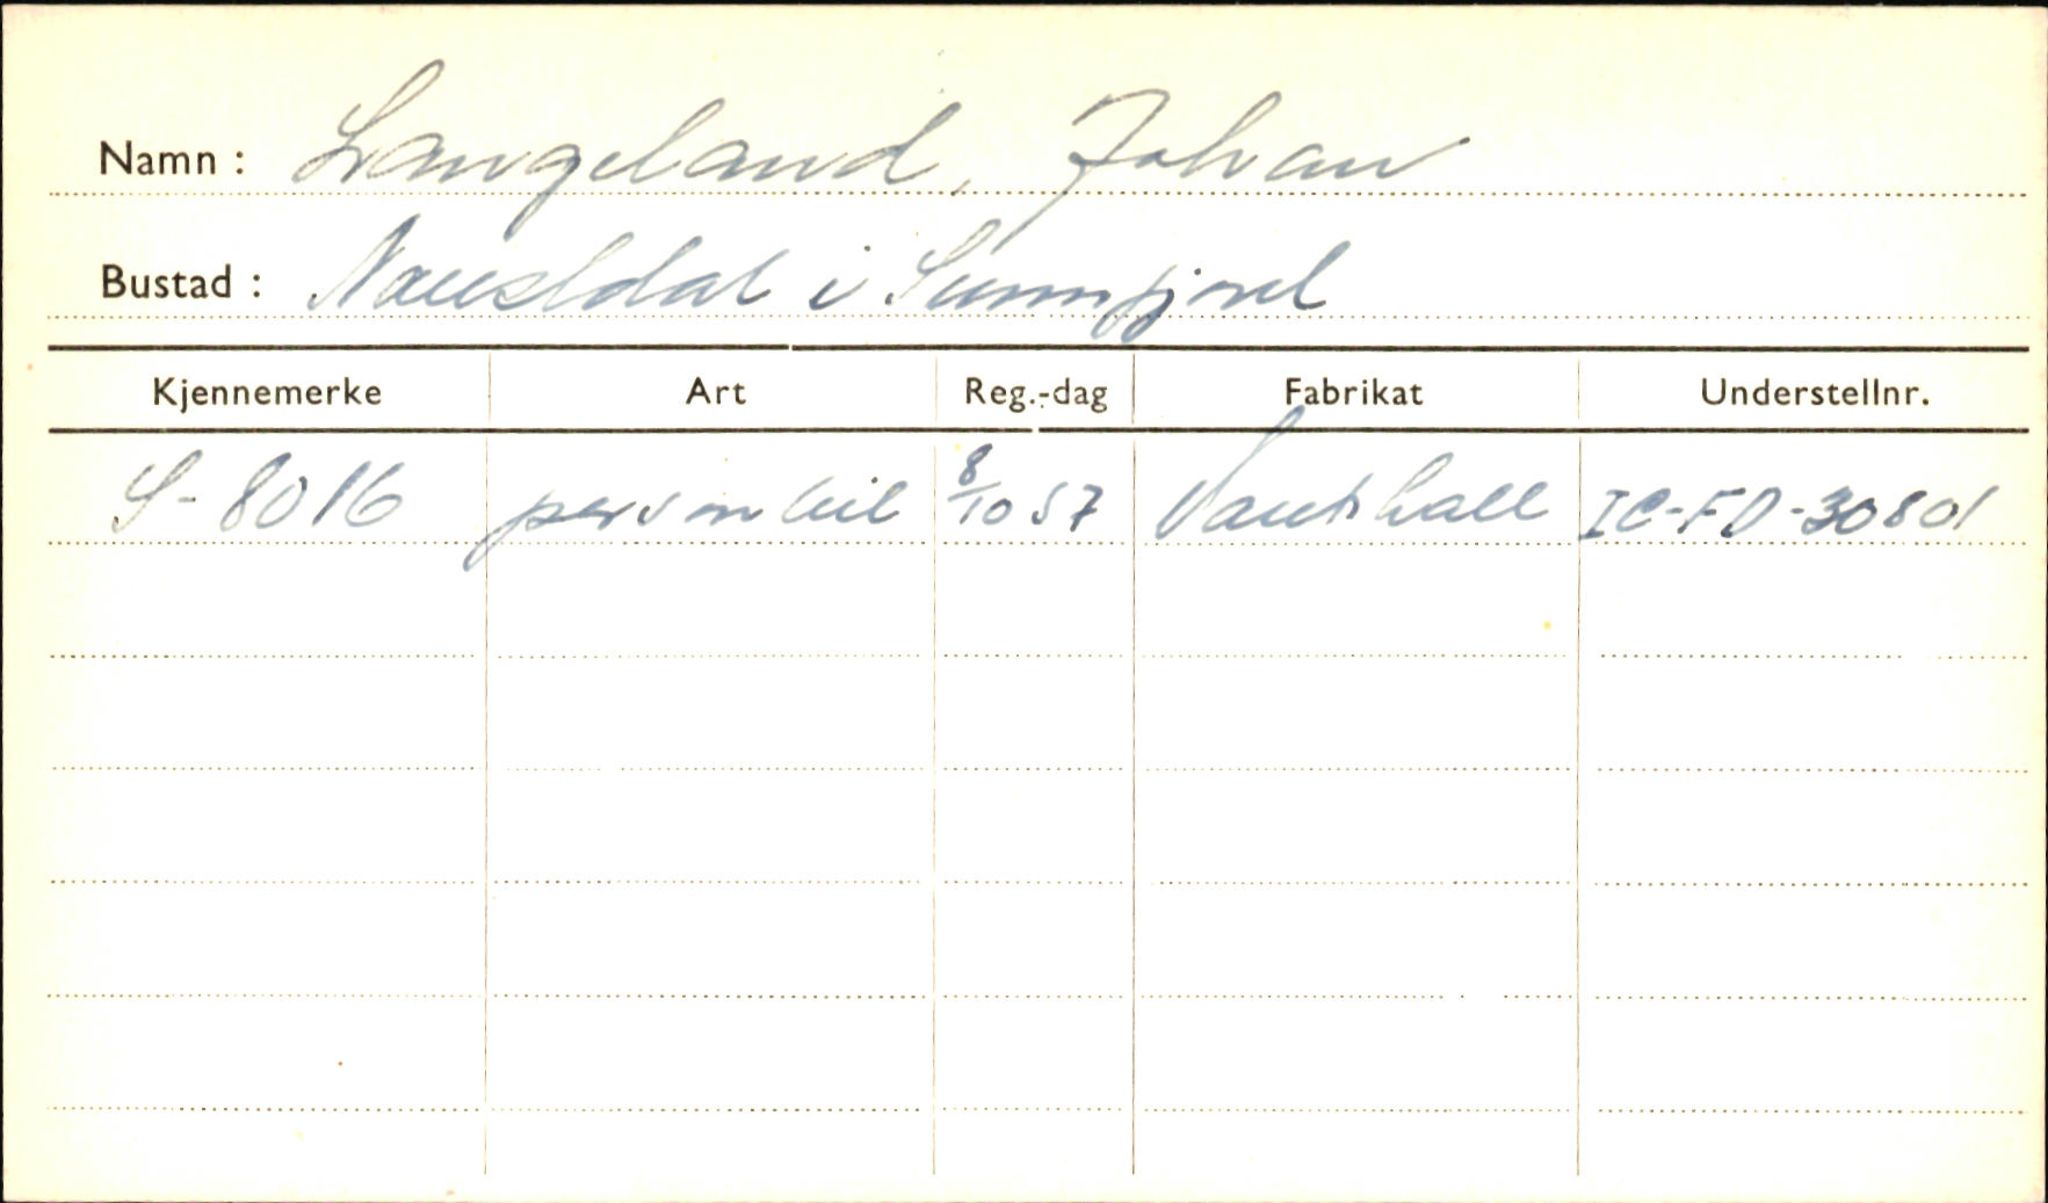 Namn : Langeland, Johan
Bustad : Naustdal i Sunnfjord
Kjennemerke Art Reg.-dag Fabrikat Understellnr.
S-8016 personbil 8/10 57 Vauxhall IC-FD-30801